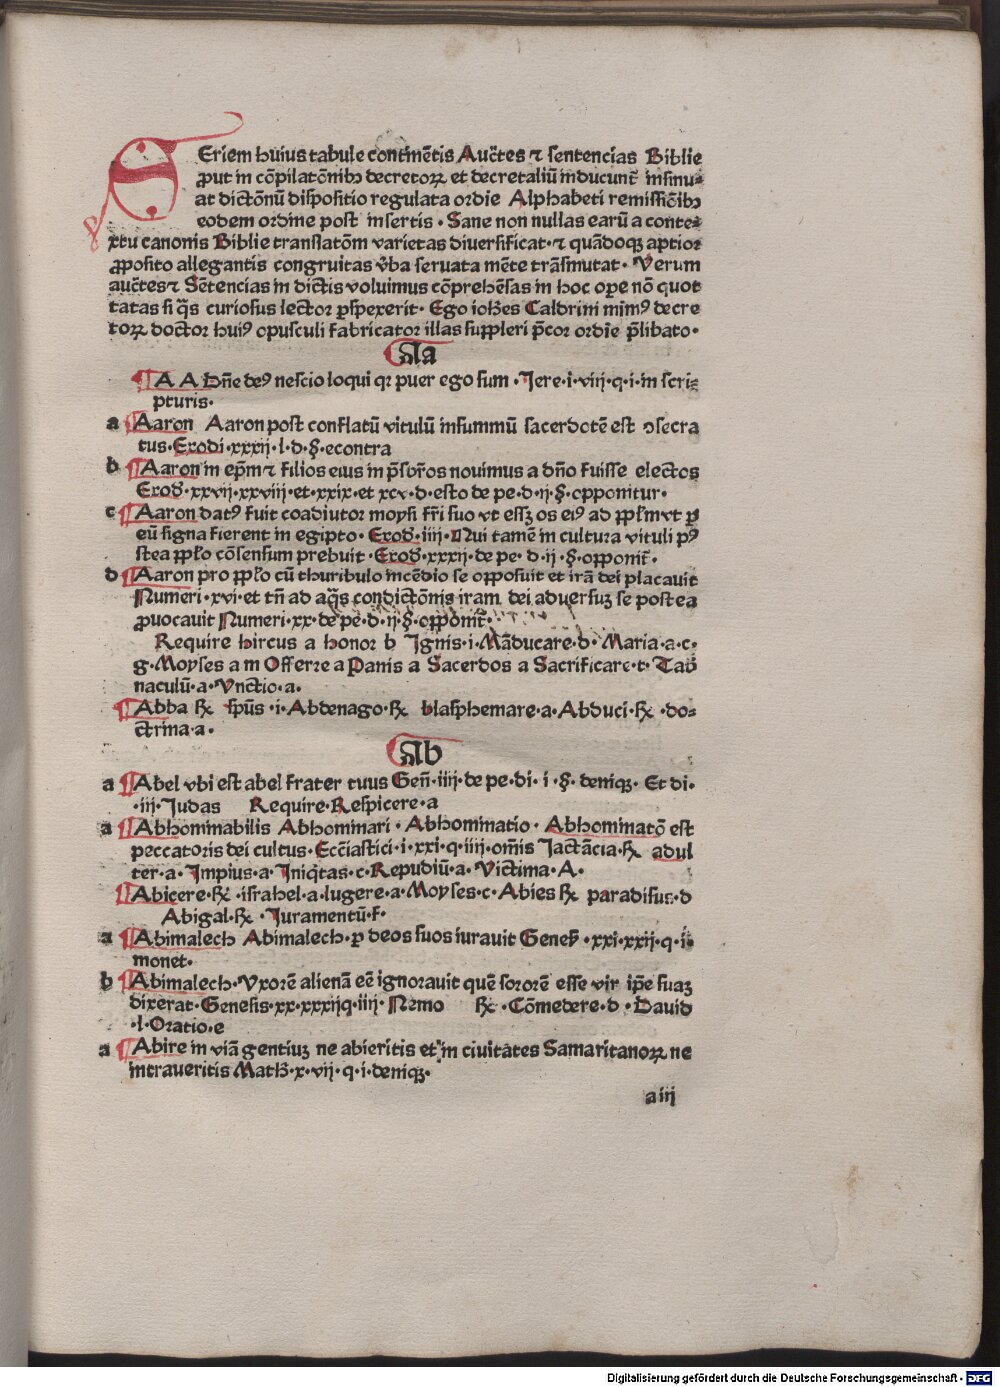 SEriem huius tabule continẽtis Auc̃tes ⁊ sentencias Biblie
ꝓut in cõpilatõnibꝫ decretoꝝ et decretaliũ inducunt̃ insinu⸗
at dictõnũ dispositio regulata ordĩe Alphabeti remissiõibꝫ
eodem ordine post insertis · Sane non nullas earũ a conte⸗
xtu canonis Biblie translatõm varietas diuersificat · ⁊ quãdoqꝫ aptior
ꝓposito allegantis congruitas v̾ba seruata mẽte trãsmutat · Verum
auc̃tes ⁊ Sẽtencias in dictis voluimus cõprehẽsas in hoc oꝑe nõ quot
tatas si q̃s curiosus lector ꝑspexerit · Ego ioh̃es Caldrini mĩmꝰ decre
toꝝ doctor huiꝰ opusculi fabricator illas suppleri p̃cor ordĩe p̃libato ·
Aa
¶ A A A dñe deꝰ nescio loqui qꝛ puer ego sum · Jere · i · viij · q · i · in scri⸗
pturis ·
a ¶ Aaron Aaron post conflatũ vitulũ insummũ sacerdotẽ est ꝯsecra
tus · Exodi · xxxij · l · d · § · econtra
b ¶ Aaron in ep̃m ⁊ filios eius in p̃sb̃ros nouimus a dño fuisse electos
Exod̾ · xxvij · xxviij · et · xxix · et xcv · d · esto de pe · d · ij · § · opponitur ·
c ¶ Aaron datꝰ fuit coadiutor moysi fr̃i suo vt essꝫ os eiꝰ ad ppl̃m vt ꝑ
eũ signa fierent in egipto · Exod̾ · iiij · Qui tamẽ in cultura vituli pꝰ
stea ppl̃o cõsensum prebuit · Exod̾ · xxxij · de pe · d · ij · § · opponit̃ ·
d ¶ Aaron pro ppl̃o cũ thuribulo incẽdio se opposuit et irã dei placauit
Numeri · xvi · et tñ ad aq̃s condictõnis iram dei aduersuꝫ se postea
ꝓuocauit Numeri · xx · de pe · d · ij · § · opponit̃ ·
Require hircus a honor b Ignis · i · Mãducare · d · Maria · a · c ·
g · Moyses a m Offerre a Panis a Sacerdos a Sacrificare · t · Tab̾
naculũ · a · Vnctio · a ·
¶ Abba ℞ sp̃us · i · Abdenago · ℞ blasphemare · a · Abduci · ℞ · do⸗
ctrina · a ·
Ab
a ¶ Abel vbi est abel frater tuus Geñ · iiij · de pe · di · i · § · deniqꝫ · Et di ·
· iij · Judas Require · Respicere · a
a ¶ Abhominabilis Abhominari · Abhominatio · Abhominatõ est
peccatoris dei cultus · Ecc̃iastici · i · xxi · q · iiij · om̃is Jactãcia · ℞ adul
ter · a · Impius · a · Iniq̃tas · c · Repudiũ · a · Victima · A ·
¶ Abicere · ℞ · israhel · a · lugere · a · Moyses · c · Abies ℞ paradisus · d
Abigal · ℞ · Juramentũ · f ·
a ¶ Abimalech Abimalech · ꝑ deos suos iurauit Genes̾ · xxi · xxij · q · i ·
monet ·
b ¶ Abimalech · Vxorẽ alienã eẽ ignorauit quẽ sororẽ esse vir ip̃e suaꝫ
dixerat · Genesis · xx · xxxij q · iiij · Nemo ℞ · Cõmedere · d · Dauid
· l · Oratio · e
a ¶ Abire in viã gentiuꝫ ne abieritis et in ciuitates Samaritanoꝝ ne
intraueritis Math̾ · x · vij · q · i · deniqꝫ ·
a iij
Digitalisierung gefördert durch die Deutsche Forschungsgemeinschaft - DFG